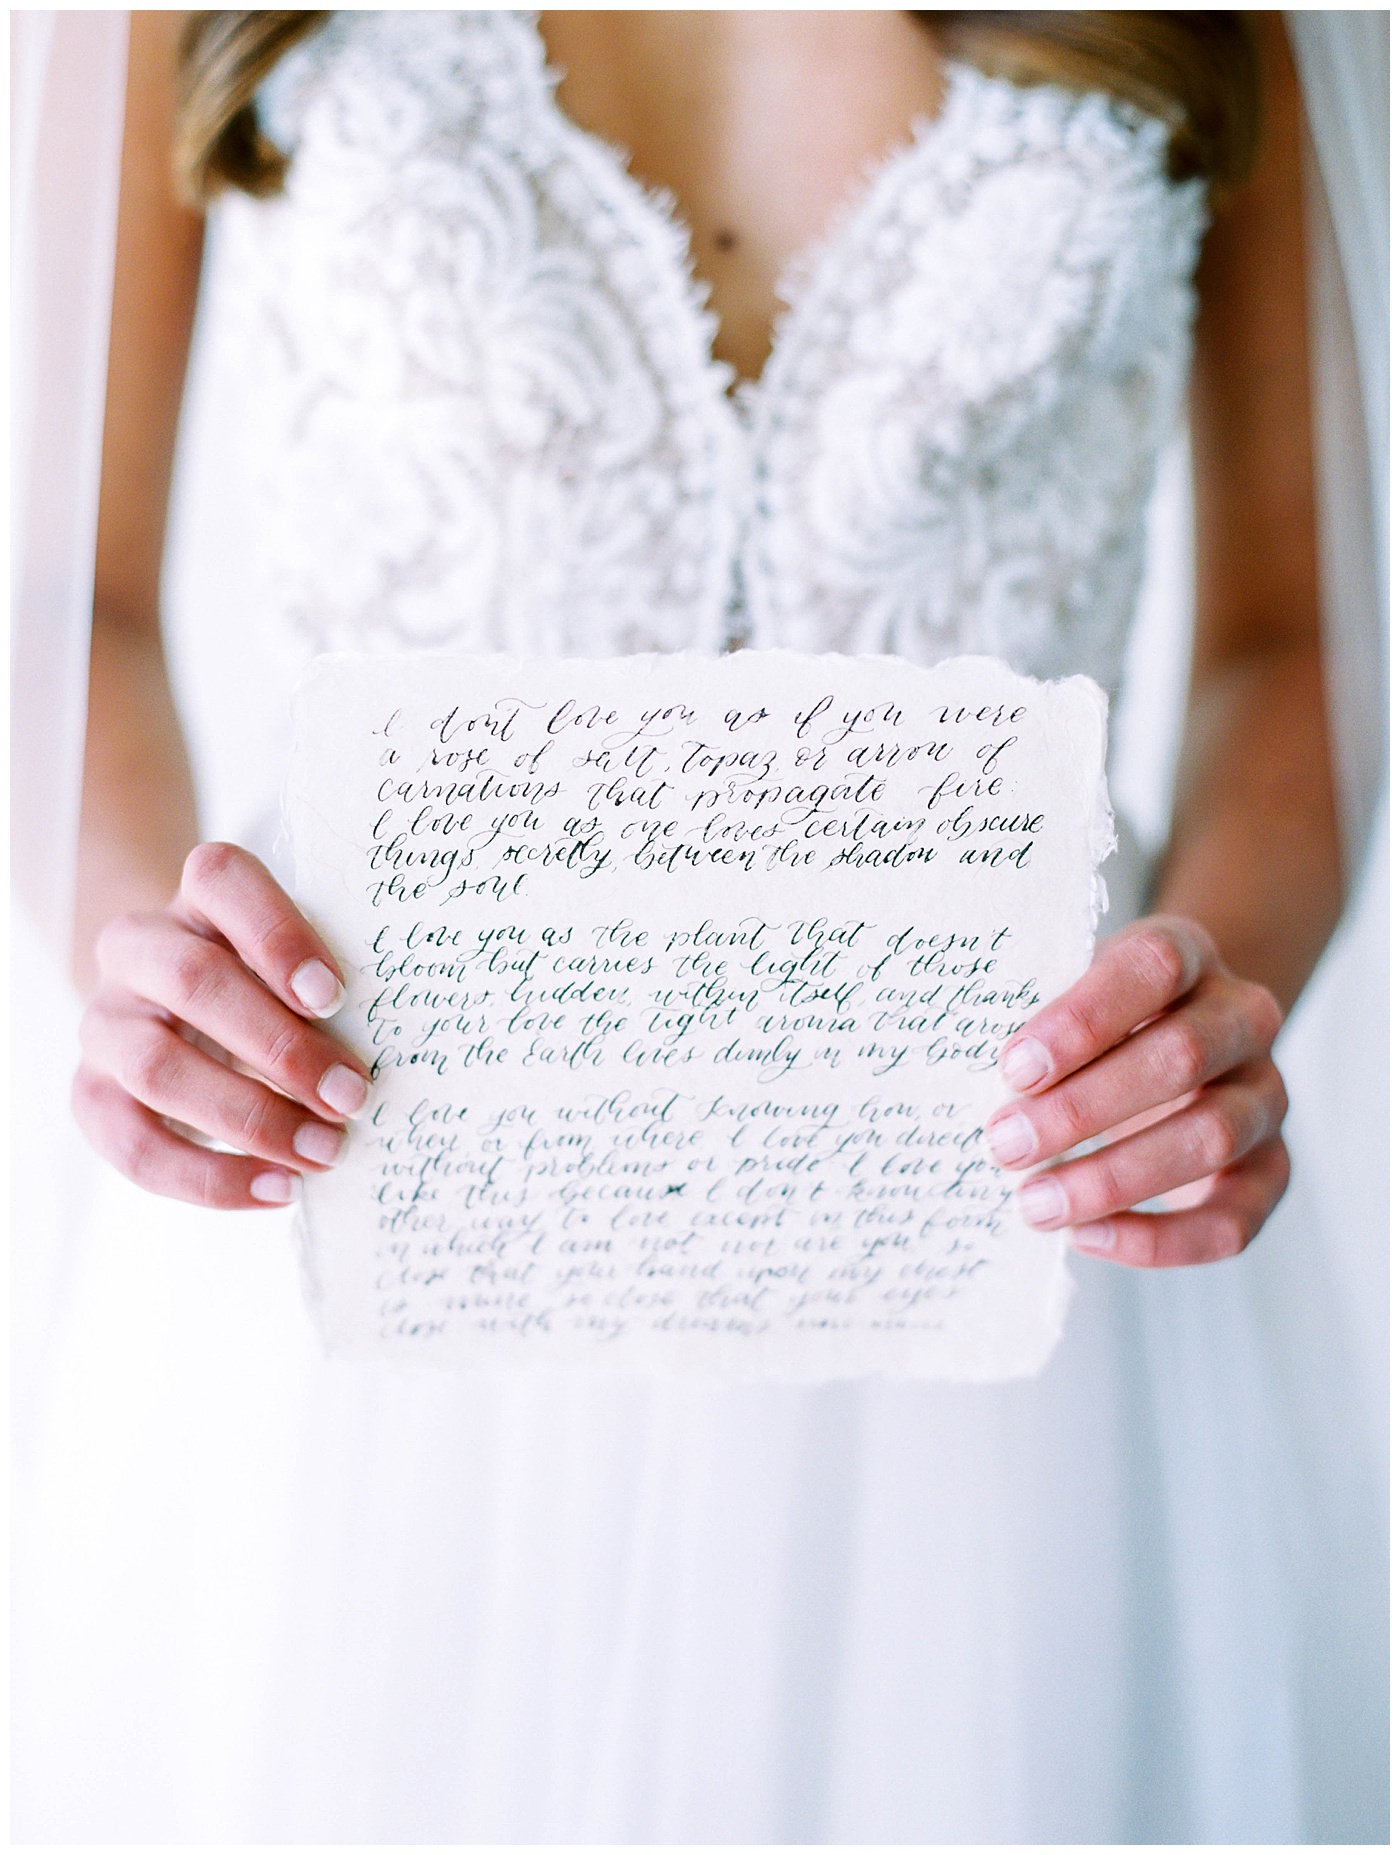 I don't love you as if you were
a rose of salt, topaz, or arrow of
carnations that propagate fire:
I love you as one loves certain obscure
things, secretly, between the shadow and
the soul.
I love you as the plant that doesn't
bloom but carries the light of those
flowers, hidden, within itself, and thanks
to your love the tight aroma that arose
from the Earth lives dimly in my body
I love you without knowing how, or
when or from where I love you directly
without problems or pride I love you
like this because I don't know any
other way to love except in this form
in which I am not nor are you so
close that your hand upon my chest
is mine so close that your eyes
close with my dreams